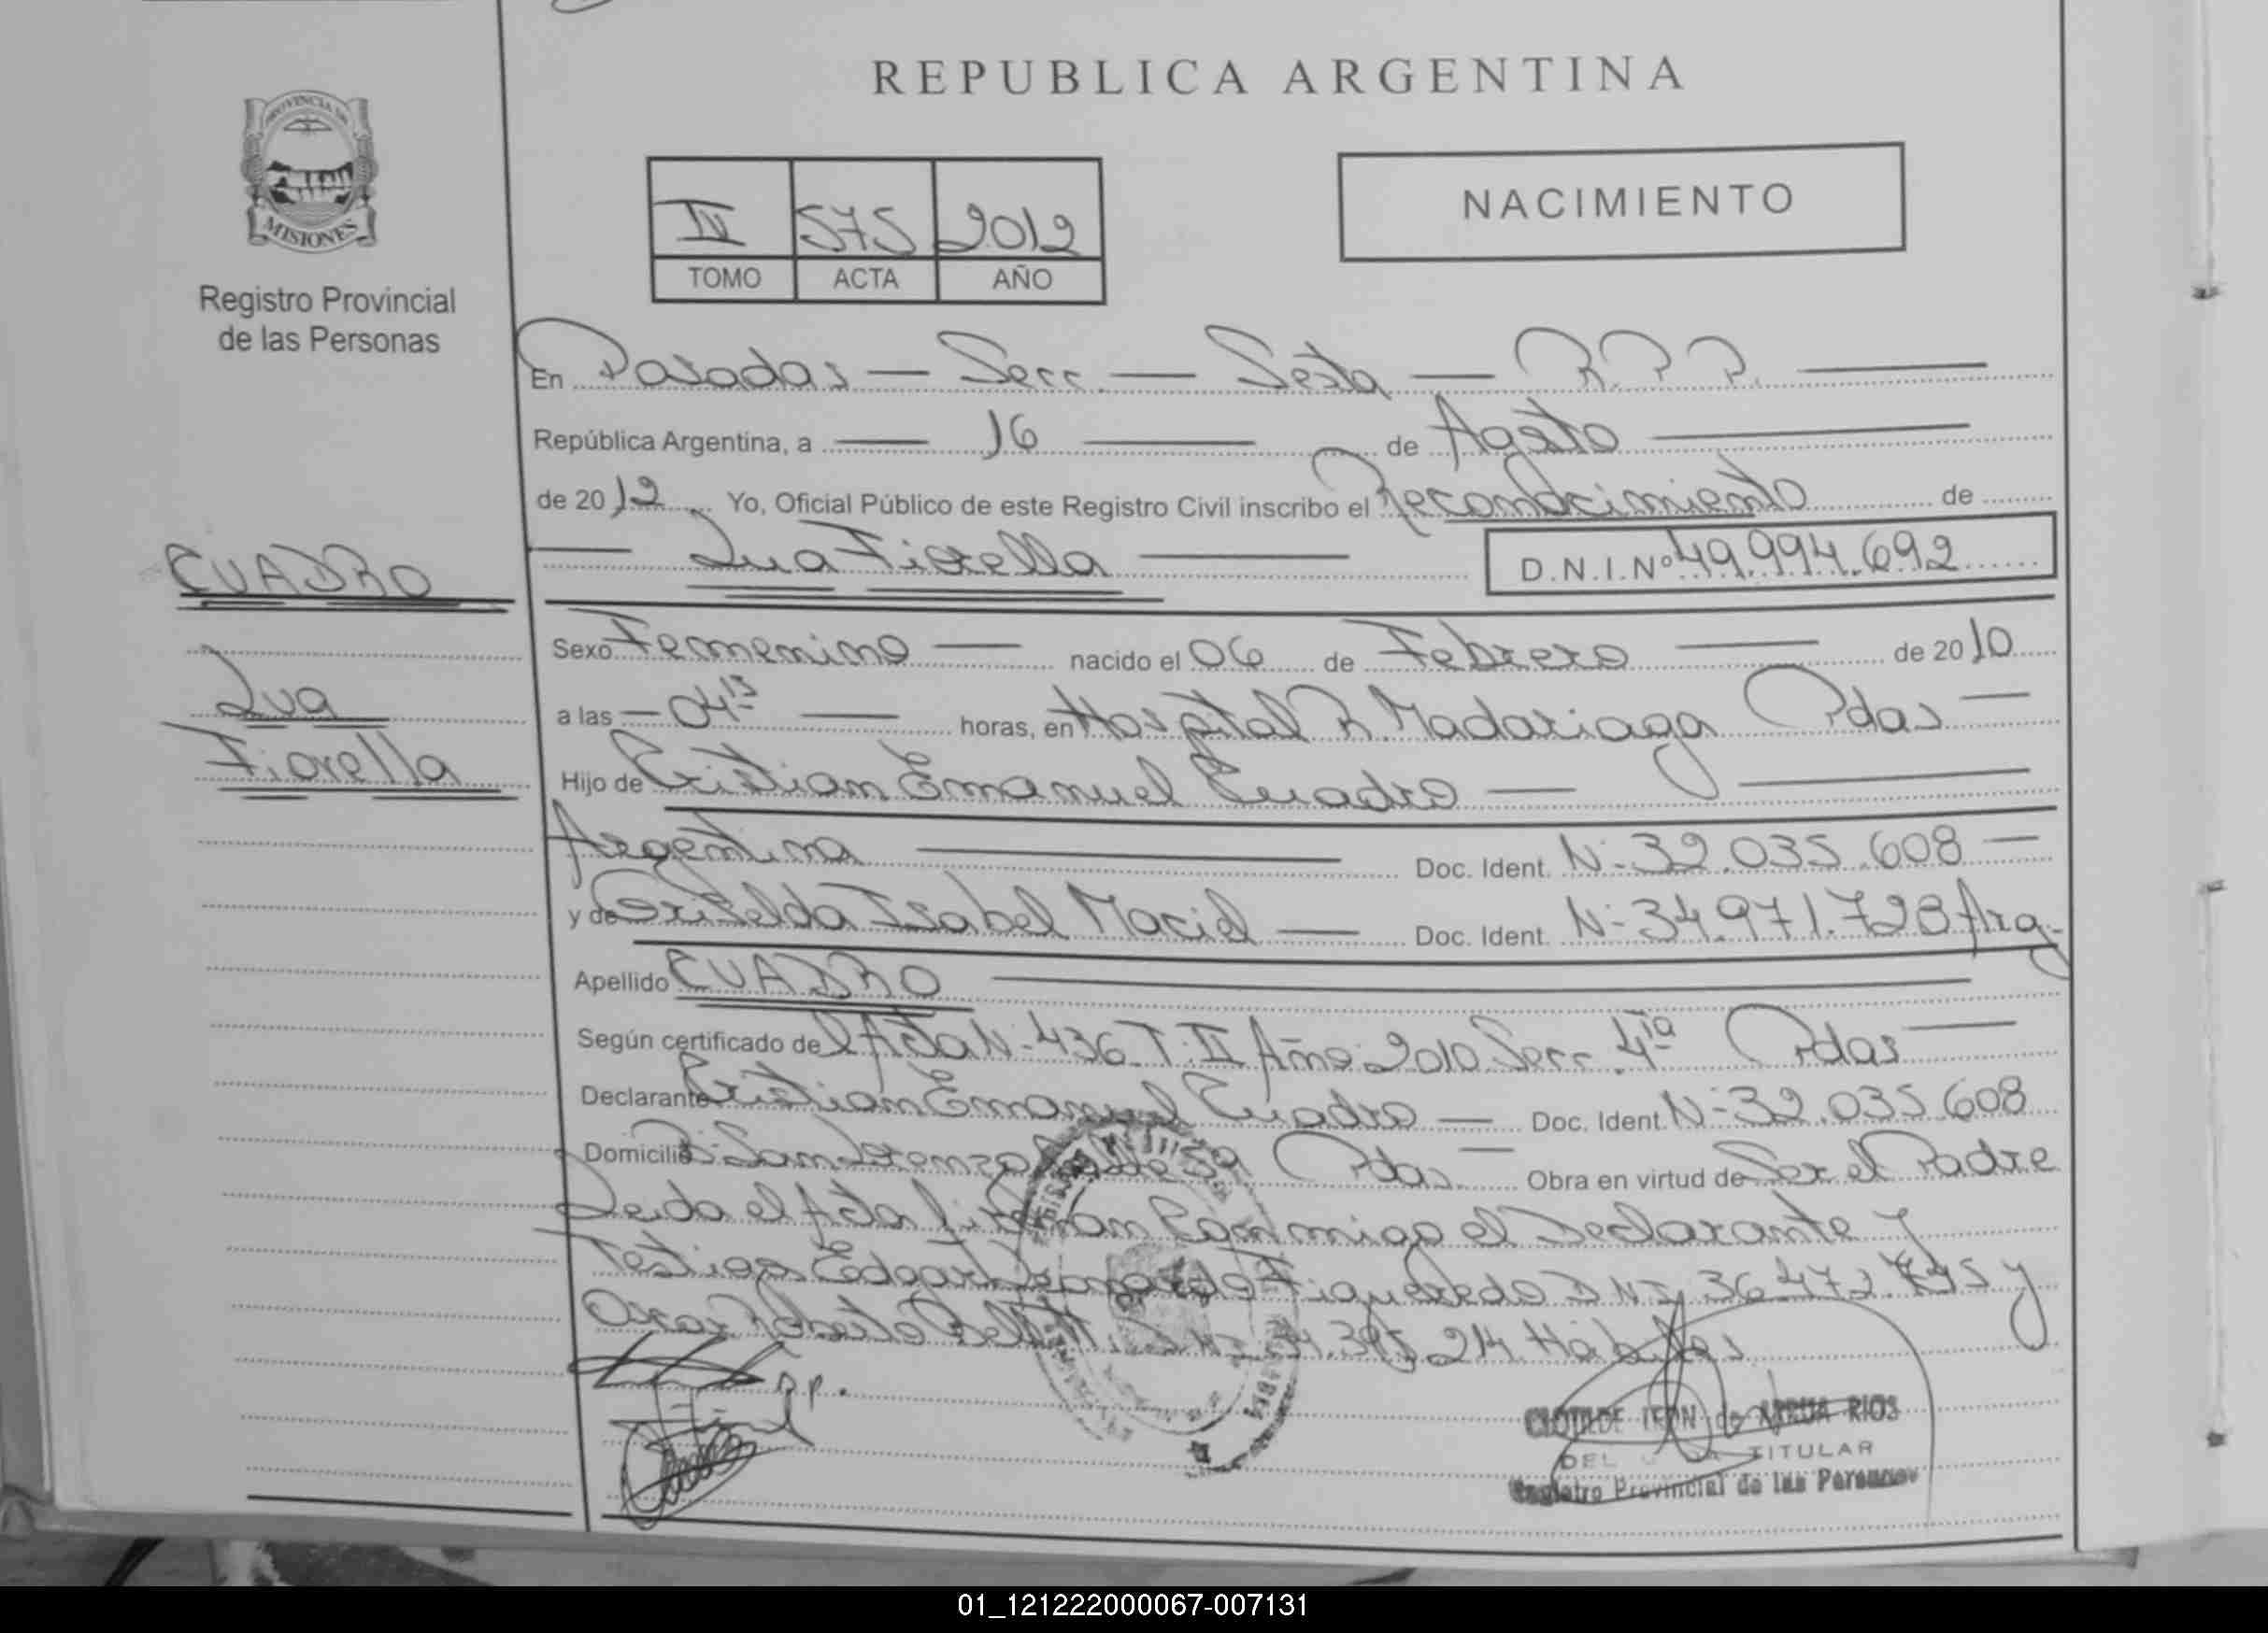 REPUBLICA ARGENTINA
PROVINCIA DE
MISIONES
Registro Provincial
de las Personas
IV 575 2012
TOMO ACTA AÑO
NACIMIENTO
En Posadas — Secc. — Sexta — R.P.P. —
República Argentina, a — 16 — de Agosto —
de 2012 Yo, Oficial Público de este Registro Civil inscribo el Reconocimiento de
— Lua Fiorella —
D.N.I.Nº 49.994.692
CUADRO
Lua
Fiorella
Sexo Femenino — nacido el 06 de Febrero — de 2010
a las — 04 15 — horas, en Hospital R. Madariaga Pdas —
Hijo de Cristian Emanuel Cuadro —
Argentina — Doc. Ident. N- 32.035.608 —
y de Griselda Isabel Maciel — Doc. Ident. N- 34.971.728 Arg.
Apellido CUADRO —
Según certificado del Acta N- 436 T: II Año: 2010 Secc. 4ta Pdas —
Declarante Cristian Emanuel Cuadro — Doc. Ident. N- 32.035.608
Domicilio B: San Lorenzo Pdas. — Obra en virtud de Ser el Padre
Leida el Acta Firman Conmigo el Declarante y
Testigos Edgar Figueredo DNI 36.472. y
Hábiles.
CLOTILDE de ARRUA RIOS
TITULAR
Registro Provincial de las Personas
01_121222000067-007131